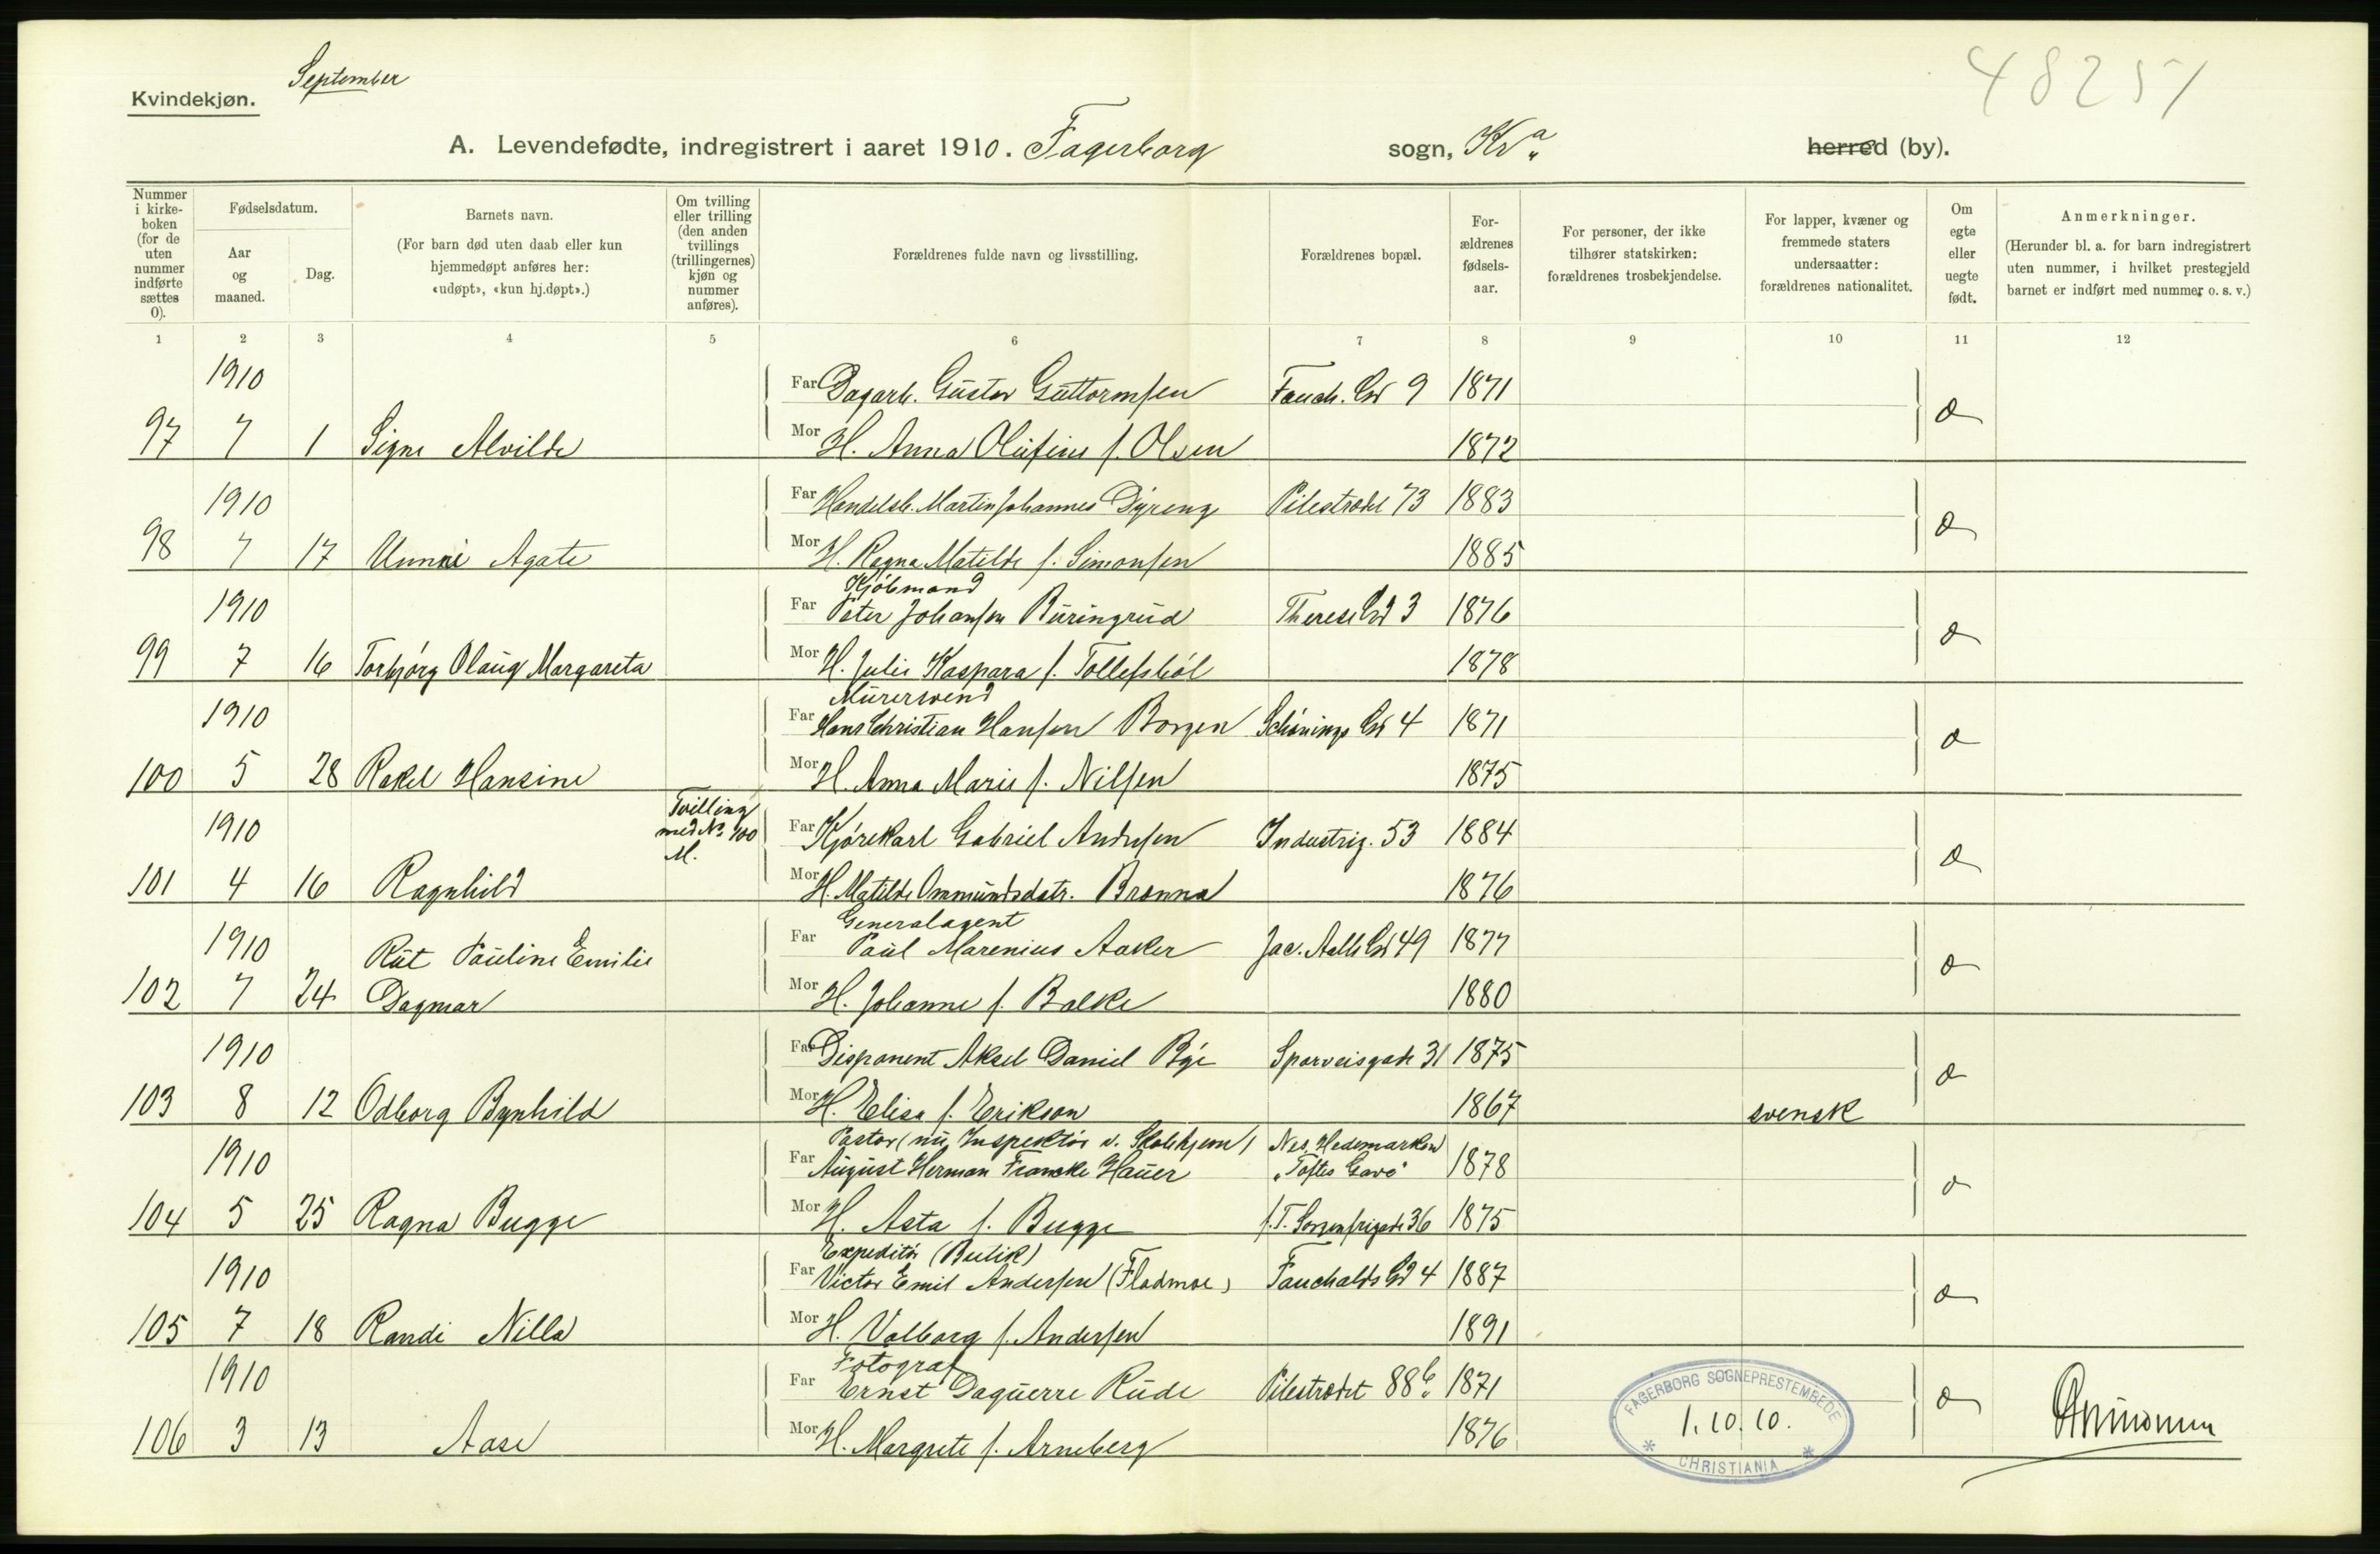 September
48251
Kvindekjøn.
A. Levendefødte, indregistrert i aaret 1910. Fagerborg sogn, Kra herred (by).
Nummer i kirkeboken (for de uten nummer indførte sættes 0).
Fødselsdatum.
Aar og maaned.
Dag.
Barnets navn.
(For barn død uten daab eller kun hjemmedøpt anføres her: «udøpt», «kun hj.døpt».)
Om tvilling eller trilling (den anden tvillings (trillingernes) kjøn og nummer anføres).
Forældrenes fulde navn og livsstilling.
Forældrenes bopæl.
For-ældrenes fødsels-aar.
For personer, der ikke tilhører statskirken: forældrenes trosbekjendelse.
For lapper, kvæner og fremmede staters undersaatter: forældrenes nationalitet.
Om egte eller uegte født.
Anmerkninger.
(Herunder bl. a. for barn indregistrert uten nummer, i hvilket prestegjeld barnet er indført med nummer o. s. v.)
1 2 3 4 5 6 7 8 9 10 11 12
1910 Far Dagarb. Gustav Guttormsen Fauch. Gd 9 1871
97 7 1 Signe Alvilde Mor H. Anna Olufine f. Olsen 1872
1910 Far Handelsb. Martin Johannes Dyreng Pilestrædet 73 1883
98 7 17 Unni Agate Mor H. Ragna Matilde f. Simonsen 1885
Kjøbmand
1910 Far Peter Johansen Buringrud Therese Gd 3 1876
99 7 16 Torbjørg Olaug Margareta Mor H. Julie Kaspara f. Tollefsbøl 1878
Murersvend
1910 Far Hans Christian Hansen Borgen Schønings Gd 4 1871
100 5 28 Rakel Hansine Mor H. Anna Marie f. Nilsen 1875
1910 Tvilling med No 100 M. Far Kjørekarl Gabriel Andersen Industrig. 53 1884
101 4 16 Ragnhild Mor H. Matilde Ommundsdatr. Brønna 1876
Generalagent
1910 Rut Pauline Emilie Far Paul Marenius Aaker Jac. Aalls Gd 49 1877
102 7 24 Dagmar Mor H. Johanne f. Balke 1880
1910 Far Disponent Aksel Daniel Bye Sporveisgade 31 1875
103 8 12 Odborg Bynhild Mor H. Elisa f. Erikson 1867 svensk
Pastor (nu Inspektør v. Skolehjem) Nes, Hedemarken
1910 Far August Herman Francke Hauer „Toftes Gave" 1878
104 5 25 Ragna Bugge Mor H. Asta f. Bugge f.T. Sorgenfrigade 36 1875
Expeditør (Butik)
1910 Far Victor Emil Andersen (Fladmoe) Fauchalds Gd 4 1887
105 7 18 Randi Nilla Mor H. Valborg f. Andersen 1891
Fotograf
1910 Far Ernst Daguerre Rude Pilestrædet 88b 1871
106 3 13 Aase Mor H. Margrete f. Arneberg 1876
FAGERBORG SOGNEPRESTEMBEDE
1.10.10.
* CHRISTIANIA *